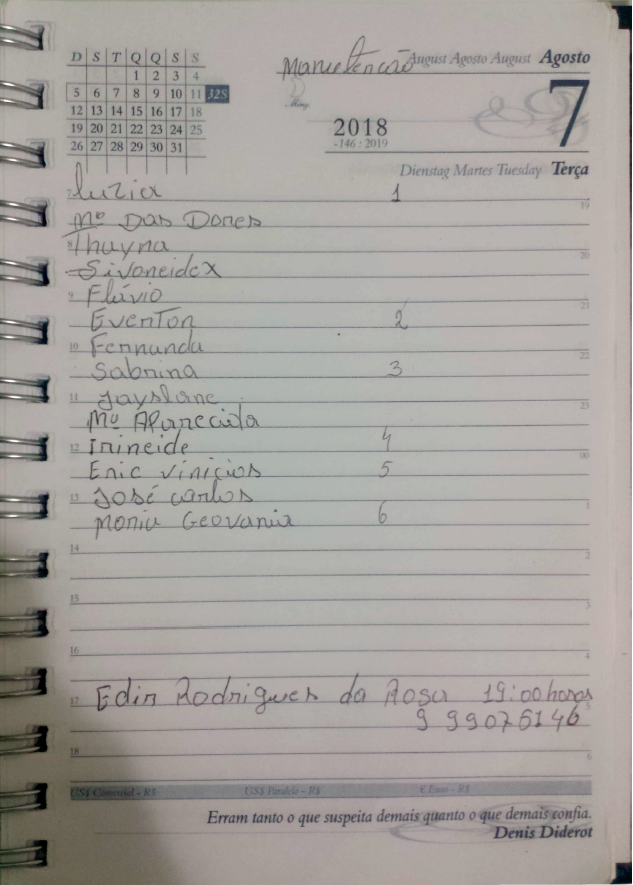 D S T Q Q S S
1 2 3 4
5 6 7 8 9 10 11 32S
12 13 14 15 16 17 18
19 20 21 22 23 24 25
26 27 28 29 30 31
Manutencão
August Agosto August Agosto
Ming.
7
2018
-146 : 2019
Dienstag Martes Tuesday Terça
7 Luzia 1 19
Mª Das Dores
8 Thayna 20
Sivoneide x
9 Flávio 21
Everton 2
10 Fernanda 22
Sabrina 3
11 Jayslane 23
Mª Aparecida
12 Irineide 4 00
Eric Vinicios 5
13 José carlos 1
Maria Geovania 6
14 2
15 3
16 4
17 Edir Rodrigues da Rosa 19:00 horas 5
9 99076146
18 6
US$ Comercial - R$ US$ Paralelo - R$ € Euro - R$
Erram tanto o que suspeita demais quanto o que demais confia.
Denis Diderot